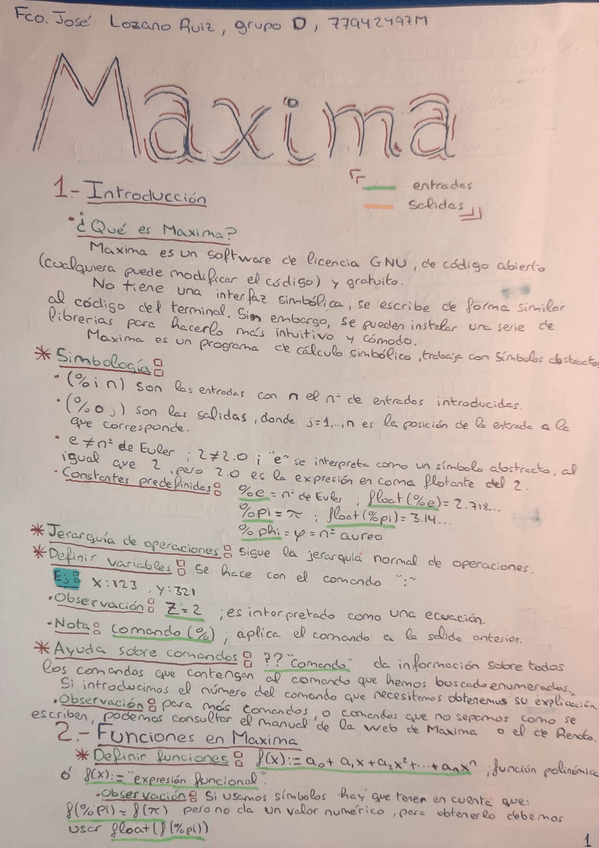 Fco. José Lozano Ruiz, grupo D, 77942497M
Maxima
entradas
salidas
1.- Introducción
· ¿Qué es Maxima?
Maxima es un software de licencia GNU, de código abierto
(cualquiera puede modificar el código) y gratuito.
No tiene una interfaz simbólica, se escribe de forma similar
al código del terminal. Sin embargo, se pueden instalar una serie de
librerias para hacerlo más intuitivo y cómodo.
Maxima es un programa de cálculo simbólico, trabaja con símbolos abstractos
* Simbología:
· (%in) son las entradas con n el nº de entradas introducidas.
· (%oj) son las salidas, donde j=1,..,n es la posición de la entrada a la
que corresponde.
· e ≠ nº de Euler; 2≠2.0 ; "e" se interpreta como un símbolo abstracto, al
igual que 2, pero 2.0 es la expresión en coma flotante del 2.
· Constantes predefinidas: %e = nº de Euler ; float(%e)= 2.718...
%pi = π ; float(%pi)= 3.14...
%phi = φ = nº aureo
* Jerarquía de operaciones: sigue la jerarquía normal de operaciones.
* Definir variables: se hace con el comando ":"
Ej: x:123 , y:321
· Observación: Z=2 ; es interpretado como una ecuación.
· Nota: comando(%) ; aplica el comando a la salida anterior.
* Ayuda sobre comandos: ?? "comando" da información sobre todos
los comandos que contengan al comando que hemos buscado enumerados.
Si introducimos el número del comando que necesitamos obtenemos su explicación
· Observación: para más comandos, o comandos que no sepamos como se
escriben, podemos consultar el manual de la web de Maxima o el de Renato.
2.- Funciones en Maxima
* Definir funciones: f(x):= a₀+a₁x+a₂x²+...+aₙxⁿ ; función polinómica
ó f(x):= "expresión funcional".
· Observación: Si usamos símbolos hay que tener en cuenta que:
f(%pi) = f(π) pero no da un valor numérico, para obtenerlo debemos
usar float(f(%pi))
1